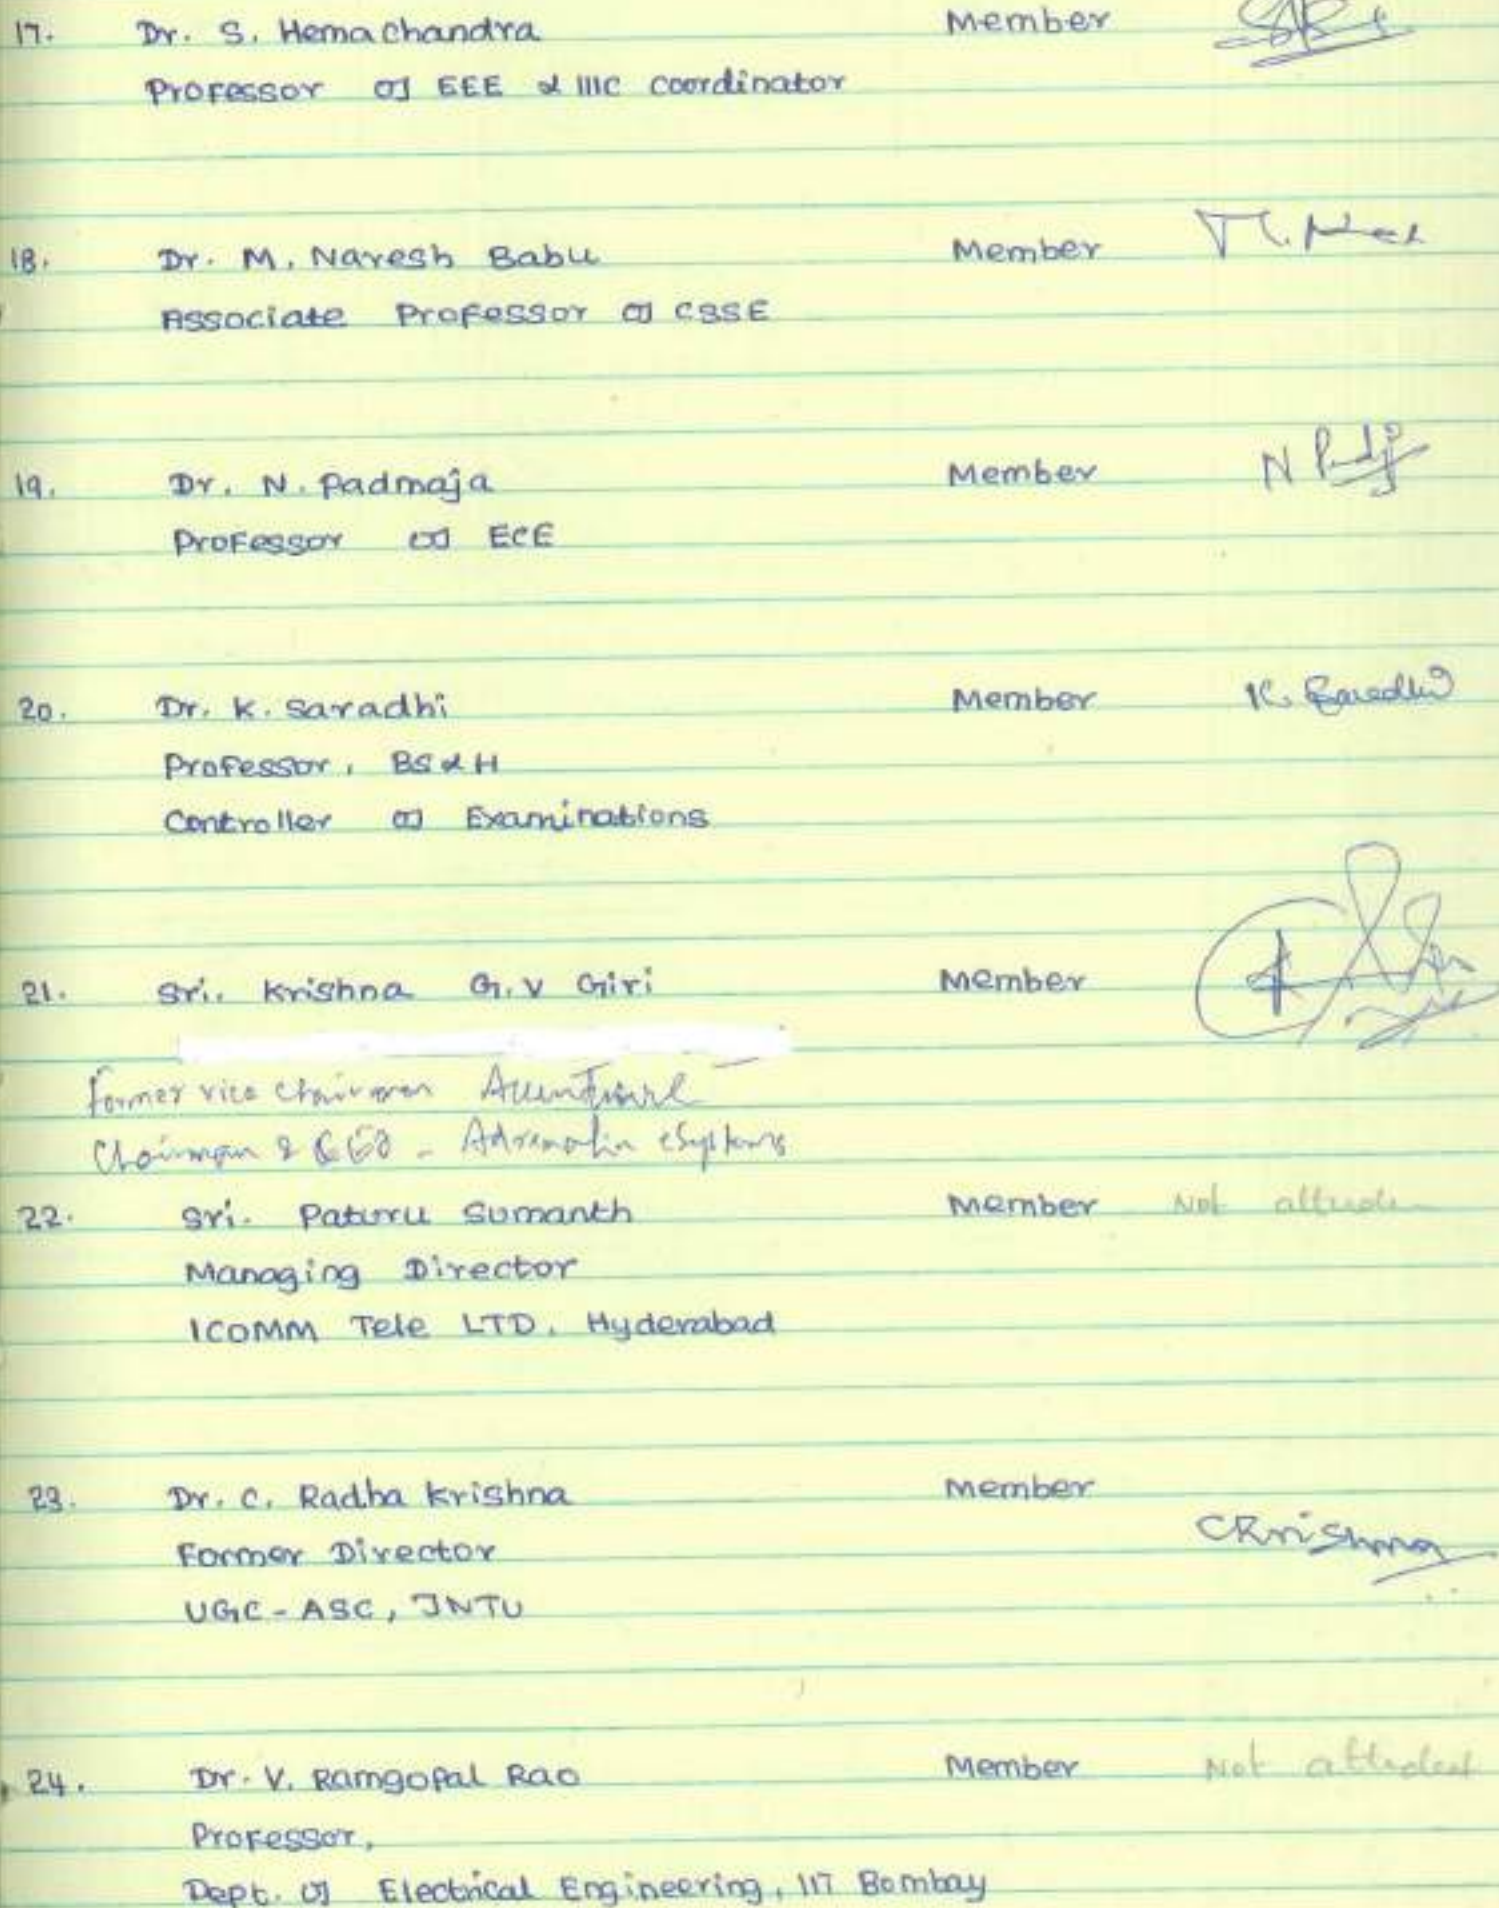 17. Dr. S. Hemachandra Member
Professor of EEE & IIIC coordinator
18. Dr. M. Naresh Babu Member
Associate Professor of CSSE
19. Dr. N. Padmaja Member
Professor of ECE
20. Dr. K. Saradhi Member K. Saradhi
Professor, BS&H
Controller of Examinations
21. Sri. Krishna G.V Giri Member
Former vice chairman
Chairman & CEO - Adrenalin eSystems
22. Sri. Paturu Sumanth Member Not attended
Managing Director
ICOMM Tele LTD, Hyderabad
23. Dr. C. Radha Krishna Member
CKrishna
Former Director
UGC-ASC, JNTU
24. Dr. V. Ramgopal Rao Member Not attended
Professor,
Dept. of Electrical Engineering, IIT Bombay